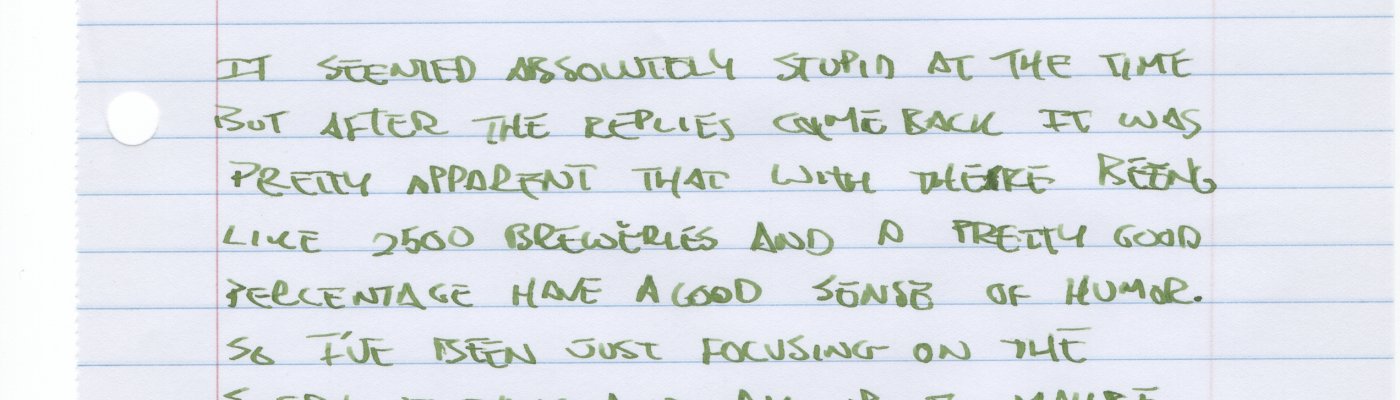 IT SEEMED ABSOLUTELY STUPID AT THE TIME
BUT AFTER THE REPLIES CAME BACK IT WAS
PRETTY APPARENT THAT WITH THERE BEING
LIKE 2500 BREWERIES AND A PRETTY GOOD
PERCENTAGE HAVE A GOOD SENSE OF HUMOR.
SO I'VE BEEN JUST FOCUSING ON THE